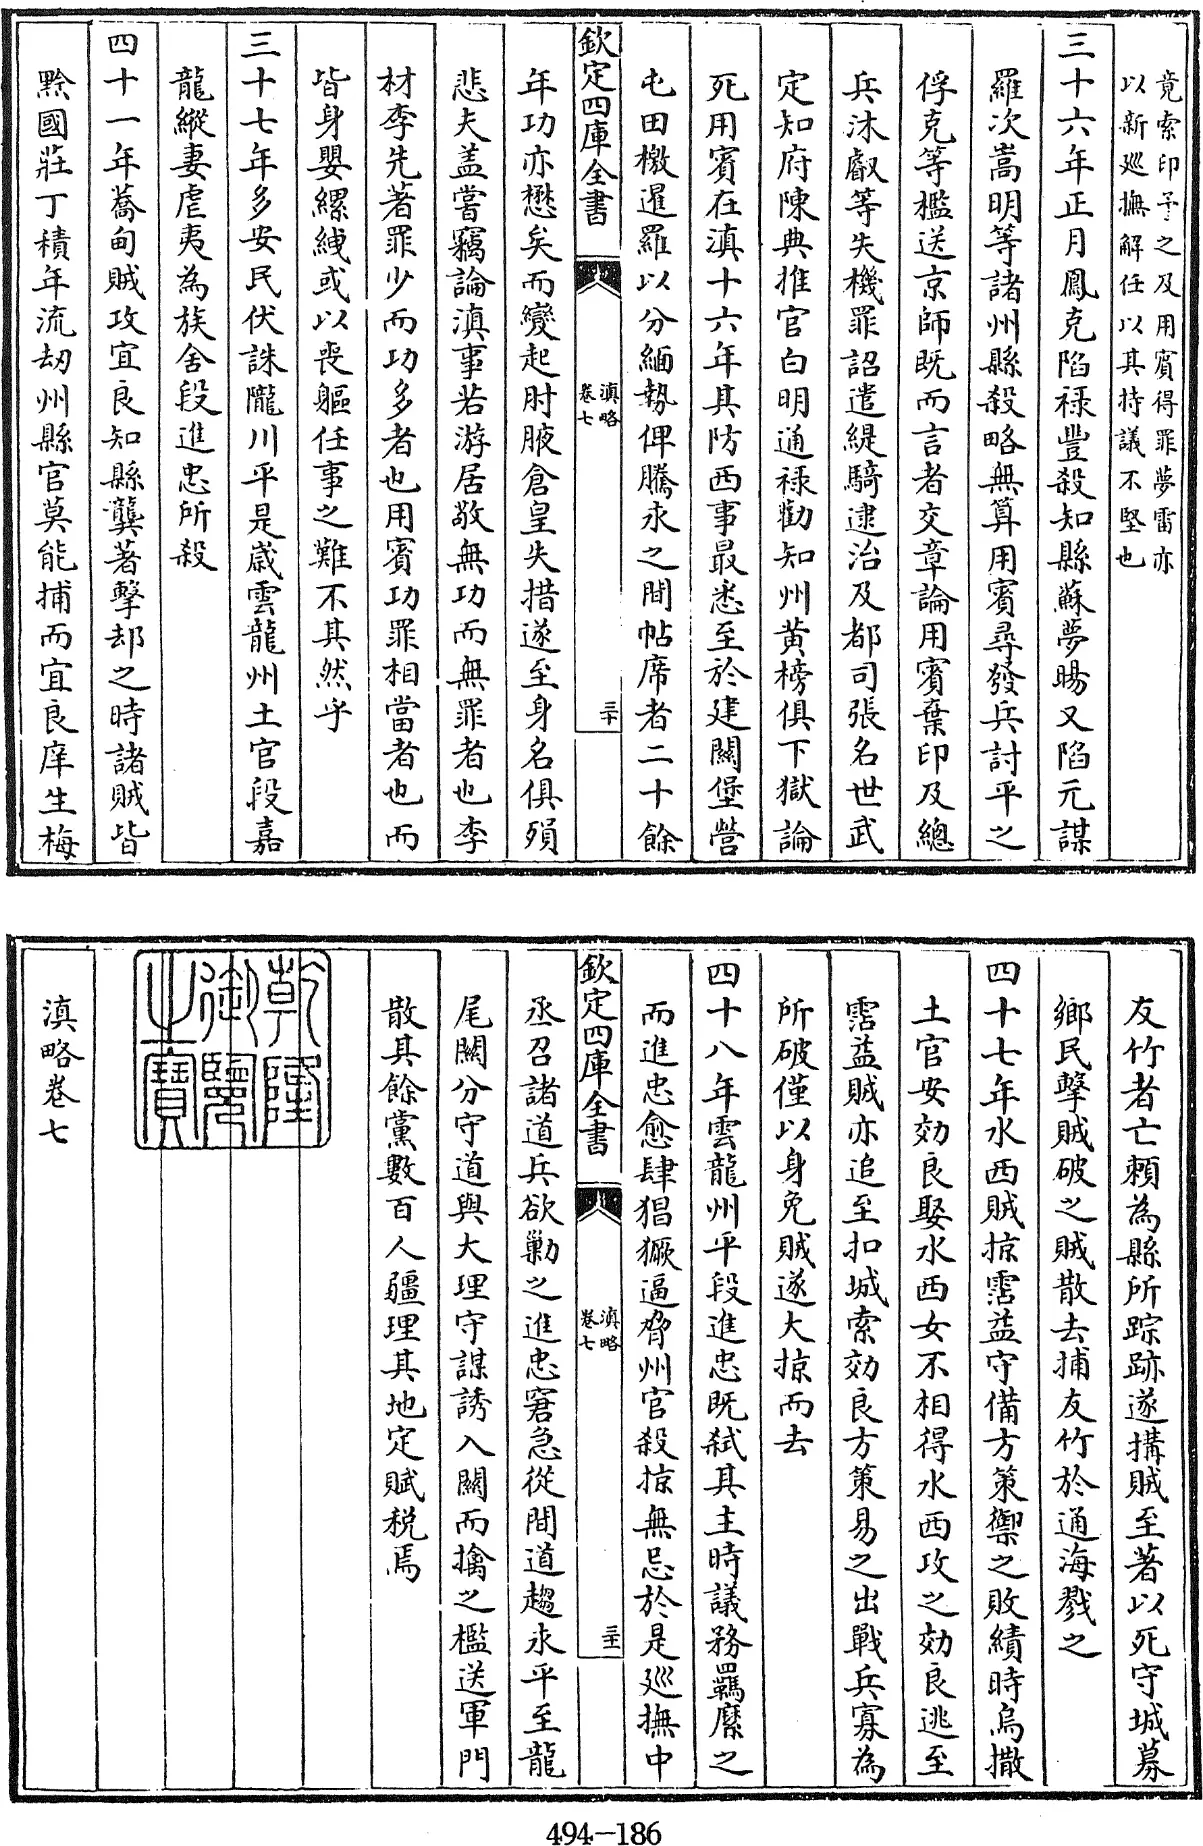 竟索印予之及用賓得罪夢雷亦
以新巡撫解任以其持議不堅也
三十六年正月鳳克陷祿豐殺知縣蘇夢暘又陷元謀
羅次嵩明等諸州縣殺略無算用賓尋發兵討平之
俘克等檻送京師既而言者交章論用賓棄印及總
兵沐叡等失機罪詔遣緹騎逮治及都司張名世武
定知府陳典推官白明通祿勸知州黄榜俱下獄論
死用賓在滇十六年其防西事最悉至於建關堡營
屯田檄暹羅以分緬勢俾騰永之間帖席者二十餘
欽定四庫全書
滇略
卷七
三十
年功亦懋矣而變起肘腋倉皇失措遂至身名俱殞
悲夫盖嘗竊論滇事若游居敬無功而無罪者也李
材李先著罪少而功多者也用賓功罪相當者也而
皆身嬰縲絏或以喪軀任事之難不其然乎
三十七年多安民伏誅隴川平是歲雲龍州土官段嘉
龍縱妻虐夷為族舍段進忠所殺
四十一年蕎甸賊攻宜良知縣龔著擊却之時諸賊皆
黔國莊丁積年流刼州縣官莫能捕而宜良庠生梅
友竹者亡賴為縣所踪跡遂搆賊至著以死守城募
鄉民擊賊破之賊散去捕友竹於通海戮之
四十七年水西賊掠霑益守備方策禦之敗績時烏撒
土官安効良娶水西女不相得水西攻之効良逃至
霑益賊亦追至扣城索効良方策易之出戰兵寡為
所破僅以身免賊遂大掠而去
四十八年雲龍州平段進忠既弑其主時議務羈縻之
而進忠愈肆猖獗逼脅州官殺掠無忌於是巡撫中
欽定四庫全書
滇略
卷七
三十一
丞召諸道兵欲勦之進忠窘急從間道趨永平至龍
尾關分守道與大理守謀誘入關而擒之檻送軍門
散其餘黨數百人疆理其地定賦税焉
乾隆
御覽
之寶
滇略卷七
494-186